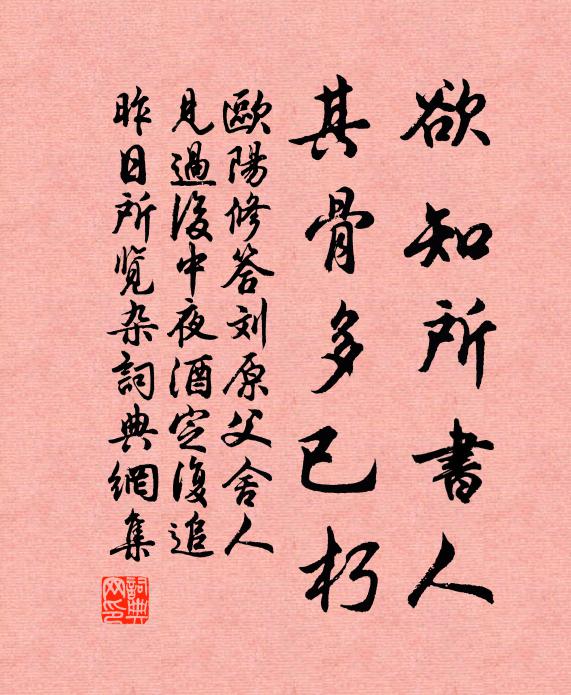 欲知所書人
其骨多已朽
歐陽修答刘原父舍人
見過後中夜酒定復追
昨日所览杂詞典網集
詞典網印